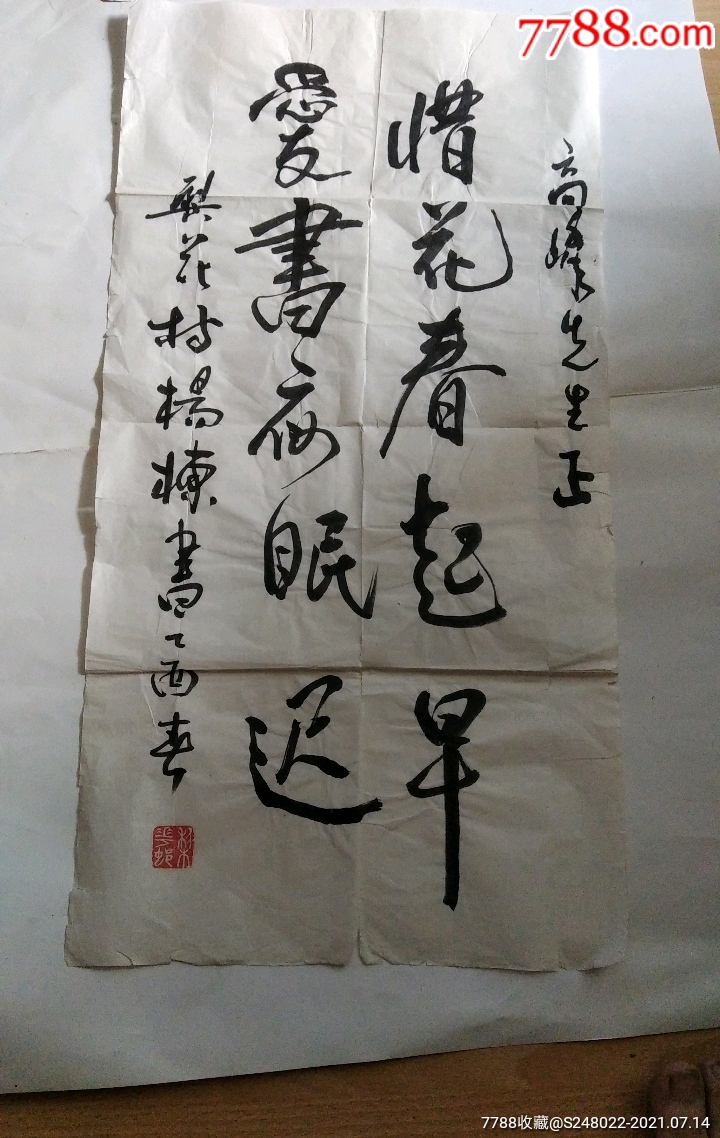 7788.com
高峰先生正
惜花春起早
愛書夜眠迟
梨花村楊棟書乙酉春
7788收藏@S248022-2021.07.14